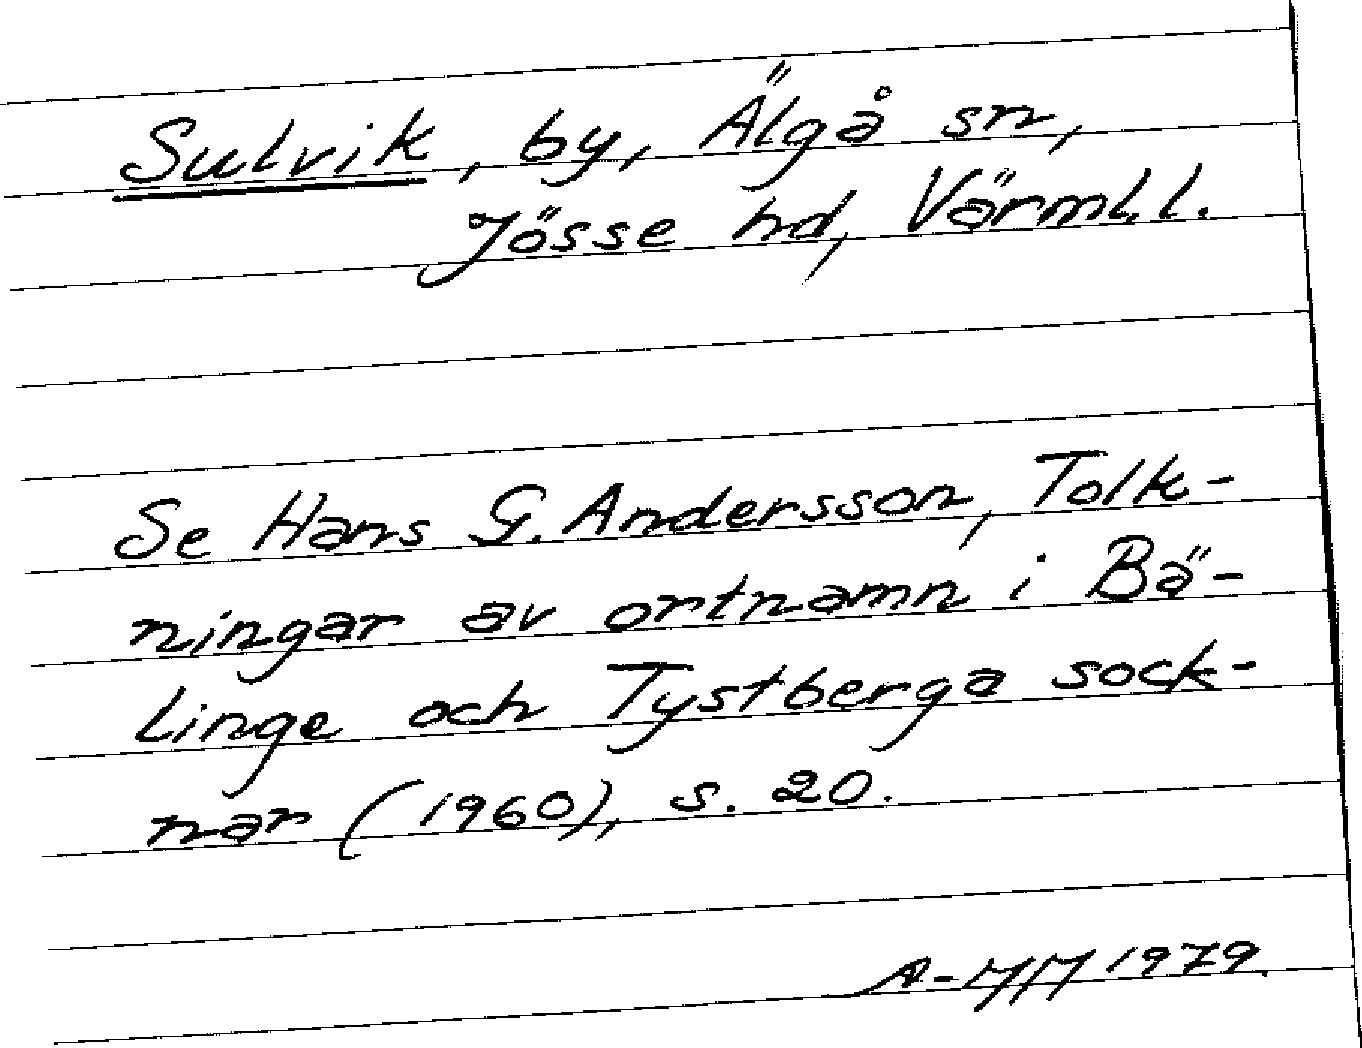 Sulvik, by, Älgå sn,
Jösse hd, Värml. l.
Se Hans G. Andersson, Tolk-
ningar av ortnamn i Bä-
linge och Tystberga sock-
nar (1960), s. 20.
1979.